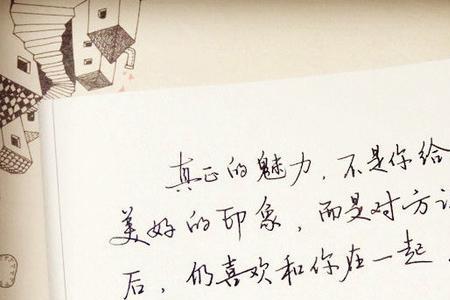 真正的魅力，不是你给
美好的印象，而是对方认
后，仍喜欢和你在一起，